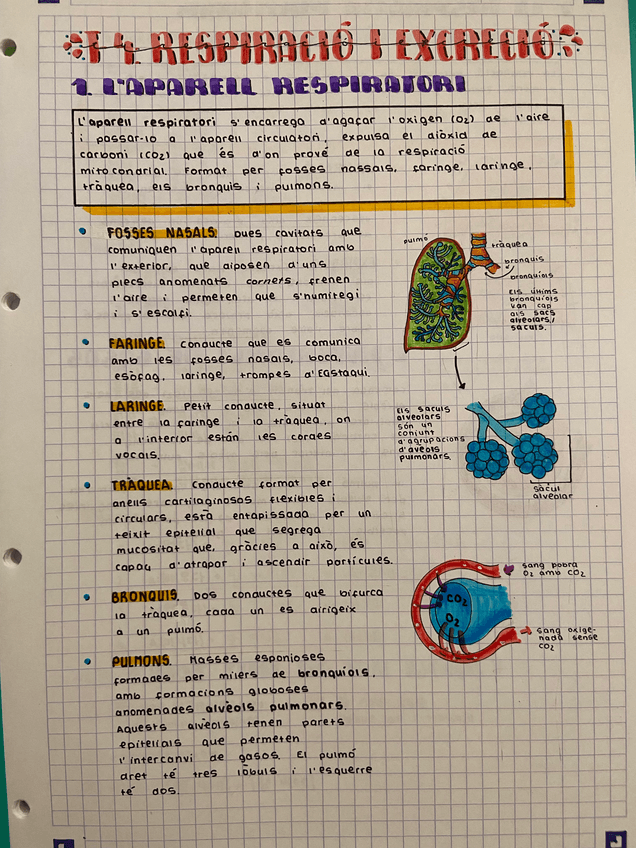 T 4. RESPIRACIÓ I EXCRECIÓ
1. L'APARELL RESPIRATORI
L'aparell respiratori s'encarrega d'agafar l'oxigen (O2) de l'aire
i passar-lo a l'aparell circulatori, expulsa el diòxid de
carboni (CO2) que és d'on prové de la respiració
mitocondrial. Format per fosses nassals, faringe, laringe,
tràquea, els bronquis i pulmons.
• FOSSES NASALS: Dues cavitats que
comuniquen l'aparell respiratori amb
l'exterior, que disposen d'uns
plecs anomenats cornets, frenen
l'aire i permeten que s'humitegi
i s'escalfi.
• FARINGE conducte que es comunica
amb les fosses nasals, boca,
esòfag, laringe, trompes d'Eastaqui.
• LARINGE. Petit conducte, situat
entre la faringe i la tràquea, on
a l'interior están les cordes
vocals.
• TRÀQUEA. Conducte format per
anells cartilaginosos flexibles i
circulars, està entapissada per un
teixit epitelial que segrega
mucositat que, gràcies a això, és
capaç d'atrapar i ascendir partícules.
• BRONQUIS. Dos conductes que bifurca
la tràquea, cada un es dirigeix
a un pulmó.
• PULMONS. Masses esponjoses
formades per milers de bronquíols,
amb formacions globoses
anomenades alvèols pulmonars.
Aquests alvèols tenen parets
epitelials que permeten
l'intercanvi de gasos. El pulmó
dret té tres lòbuls i l'esquerre
té dos.
pulmó
tràquea
bronquis
bronquíols
Els últims
bronquíols
van cap
als sacs
alveolars/
saculs.
Els saculs
alveolars
són un
conjunt
d'agrupacions
d'avèols
pulmonars.
sàcul
alveolar
CO2
O2
sang pobra
O2 amb CO2
sang oxige-
nada sense
CO2